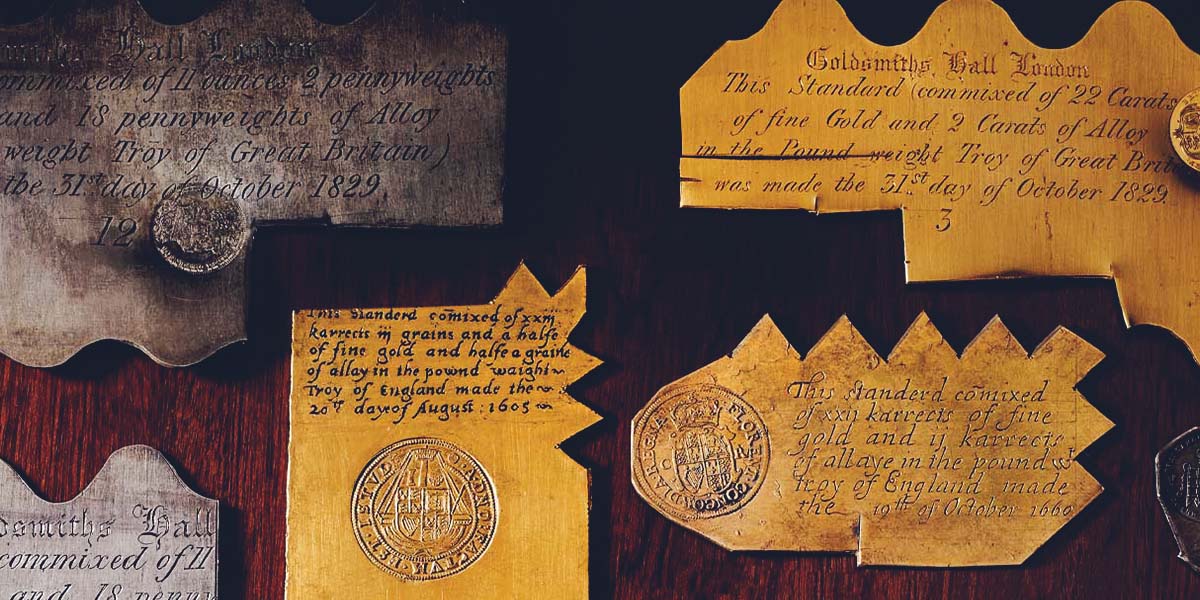 Hall London
commixed of 11 ounces 2 pennyweights
and 18 pennyweights of Alloy
weight Troy of Great Britain)
the 31st day of October 1829.
12
Goldsmiths, Hall London
This Standard (commixed of 22 Carats
of fine Gold and 2 Carats of Alloy
in the Pound weight Troy of Great Brit
was made the 31.st day of October 1829.
3
This standerd comixed of xxiij
karrects iij grains and a halfe
of fine gold and halfe a graine
of allay in the pownd waight
Troy of England made the
20th day of August : 1605
A DOMINO FACTVM EST ISTVD
This standerd comixed
of xxij karrects of fine
gold and ij karrects
of allaye in the pound wt
troy of England made
the 19th of October 1660
FLORENT CONCORDIA REGNA
C R
dsmiths Hall
commixed of 11
and 18 penny